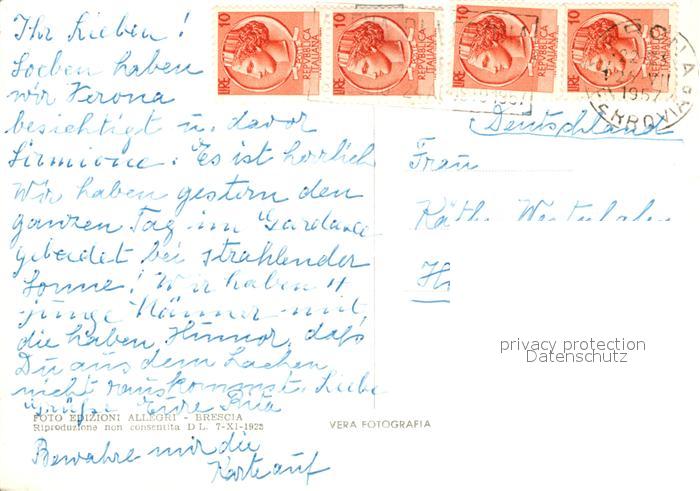 Ihr Lieben!
Soeben haben
wir Verona
besichtigt u. davor
Sirmione. Es ist herrlich
Wir haben gestern den
ganzen Tag im Gardasee
gebadet bei strahlender
Sonne! Wir haben 4
junge Männer mit,
die haben Humor, daß
Du aus dem Lachen
nicht rauskommst. Liebe
Grüße Eure
Bewahre mir die
Karte auf
FOTO EDIZIONI ALLEGRI - BRESCIA
Riproduzione non consentita D L. 7-XI-1925
VERA FOTOGRAFIA
LIRE 10 REPVBBLICA ITALIANA
LIRE 10 REPVBBLICA ITALIANA
LIRE 10 REPVBBLICA ITALIANA
LIRE 10
1957
FERROVIA
Deutschland
Frau
Käthe
privacy protection
Datenschutz